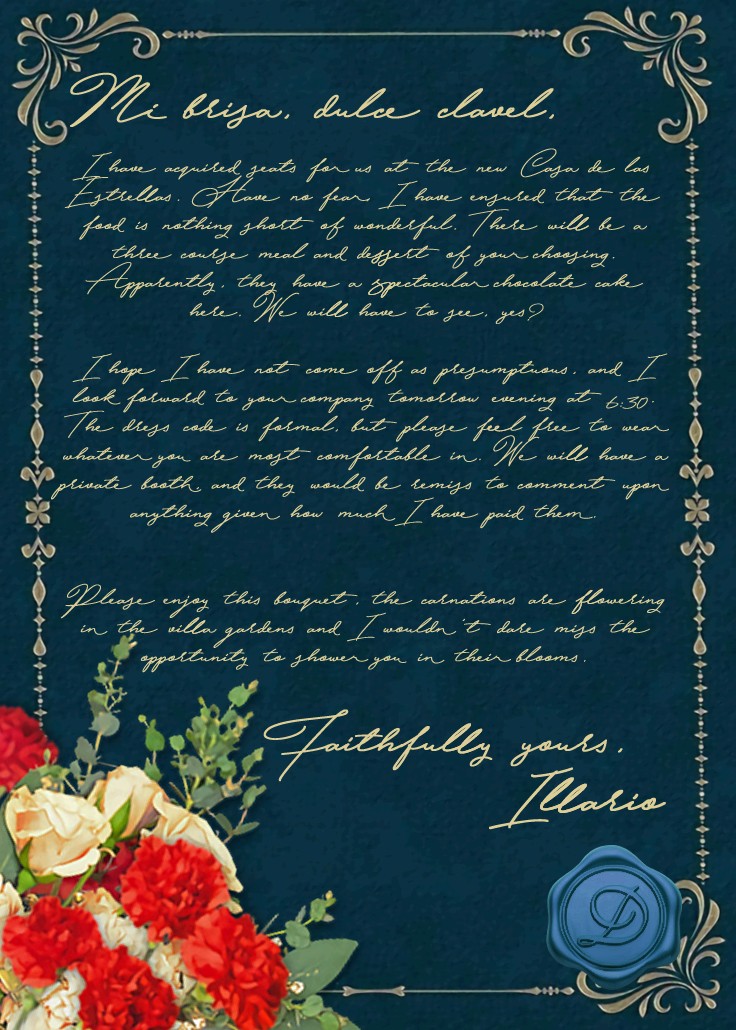 Mi brisa, dulce clavel,
I have acquired seats for us at the new Casa de las
Estrellas. Have no fear, I have ensured that the
food is nothing short of wonderful. There will be a
three course meal and dessert of your choosing.
Apparently, they have a spectacular chocolate cake
here. We will have to see, yes?
I hope I have not come off as presumptuous, and I
look forward to your company tomorrow evening at 6:30.
The dress code is formal, but please feel free to wear
whatever you are most comfortable in. We will have a
private booth, and they would be remiss to comment upon
anything given how much I have paid them.
Please enjoy this bouquet, the carnations are flowering
in the villa gardens and I wouldn't dare miss the
opportunity to shower you in their blooms.
Faithfully yours,
Illario
D